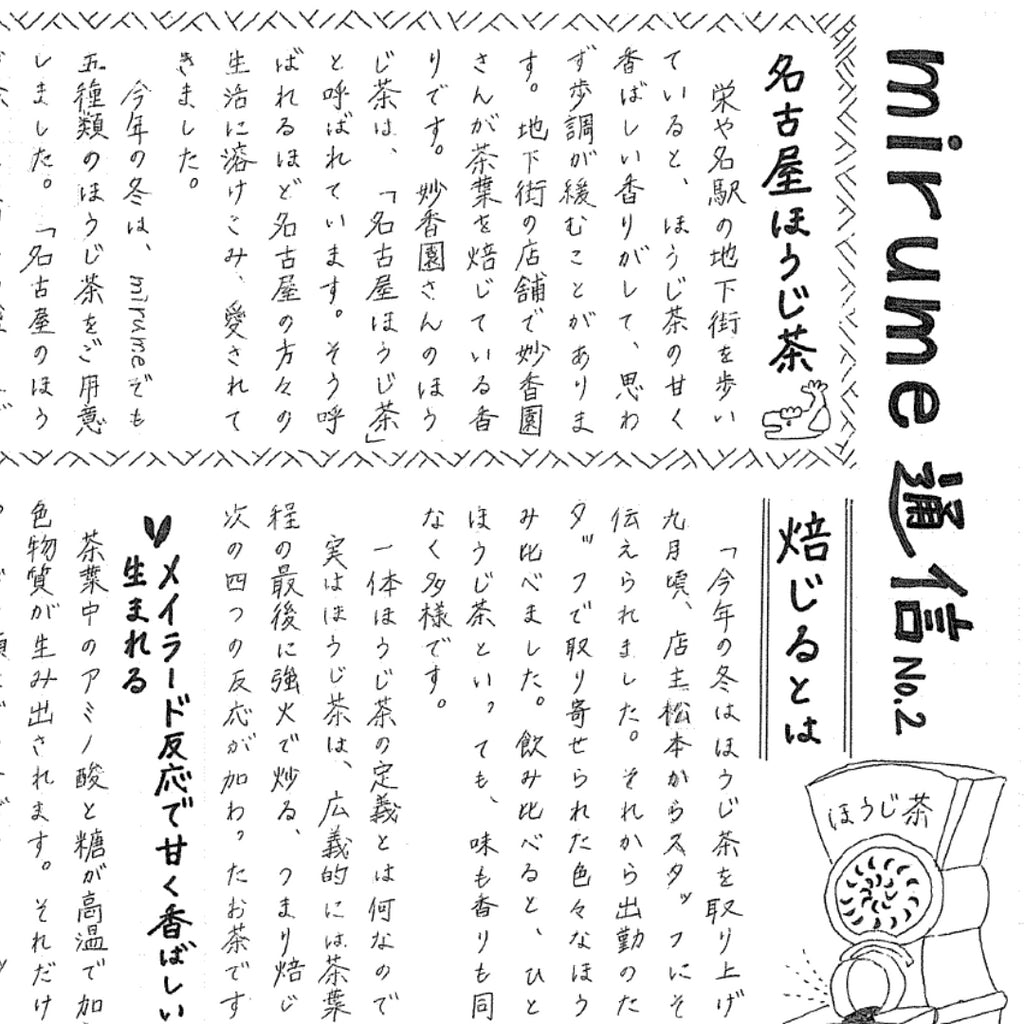 mirume通信 No.2
名古屋ほうじ茶
栄や名駅の地下街を歩い
ていると、ほうじ茶の甘く
香ばしい香りがして、思わ
ず歩調が緩むことがありま
す。地下街の店舗で妙香園
さんが茶葉を焙じている香
りです。妙香園さんのほう
じ茶は、「名古屋ほうじ茶」
と呼ばれています。そう呼
ばれるほど名古屋の方々の
生活に溶けこみ、愛されて
きました。
今年の冬は、mirumeでも
五種類のほうじ茶をご用意
しました。「名古屋のほう
焙じるとは
「今年の冬はほうじ茶を取り上げ
九月頃、店主松本からスタッフにそ
伝えられました。それから出勤のた
タッフで取り寄せられた色々なほう
み比べました。飲み比べると、ひと
ほうじ茶といっても、味も香りも同
なく多様です。
一体ほうじ茶の定義とは何なので
実はほうじ茶は、広義的には茶葉
程の最後に強火で炒る、つまり焙じ
次の四つの反応が加わったお茶です
メイラード反応で甘く香ばしい
生まれる
茶葉中のアミノ酸と糖が高温で加
色物質が生み出されます。それだけ
ほうじ茶